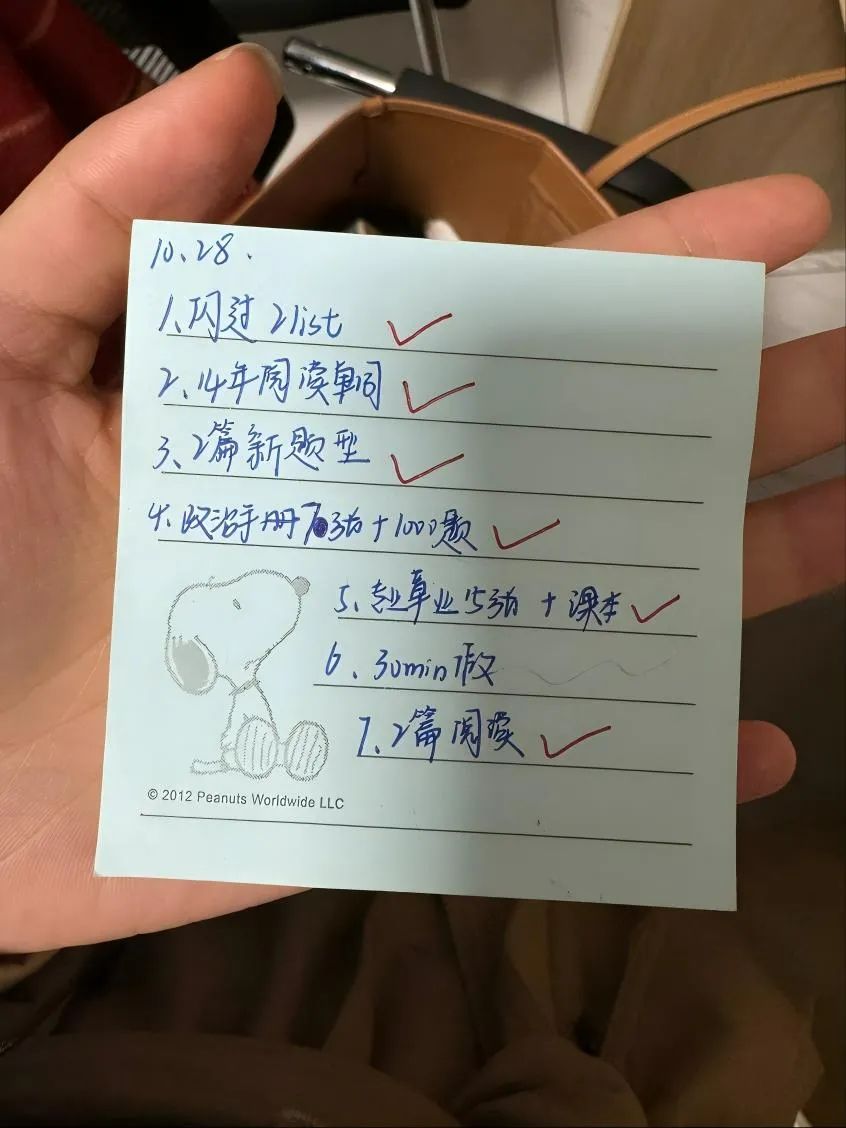 10、28.
1、闪过2list
2、14年阅读单词
3、2篇新题型
4、政治手册7 张+1000题
5、专业 业15张+课本
6、30min
7、2篇阅读
© 2012 Peanuts Worldwide LLC